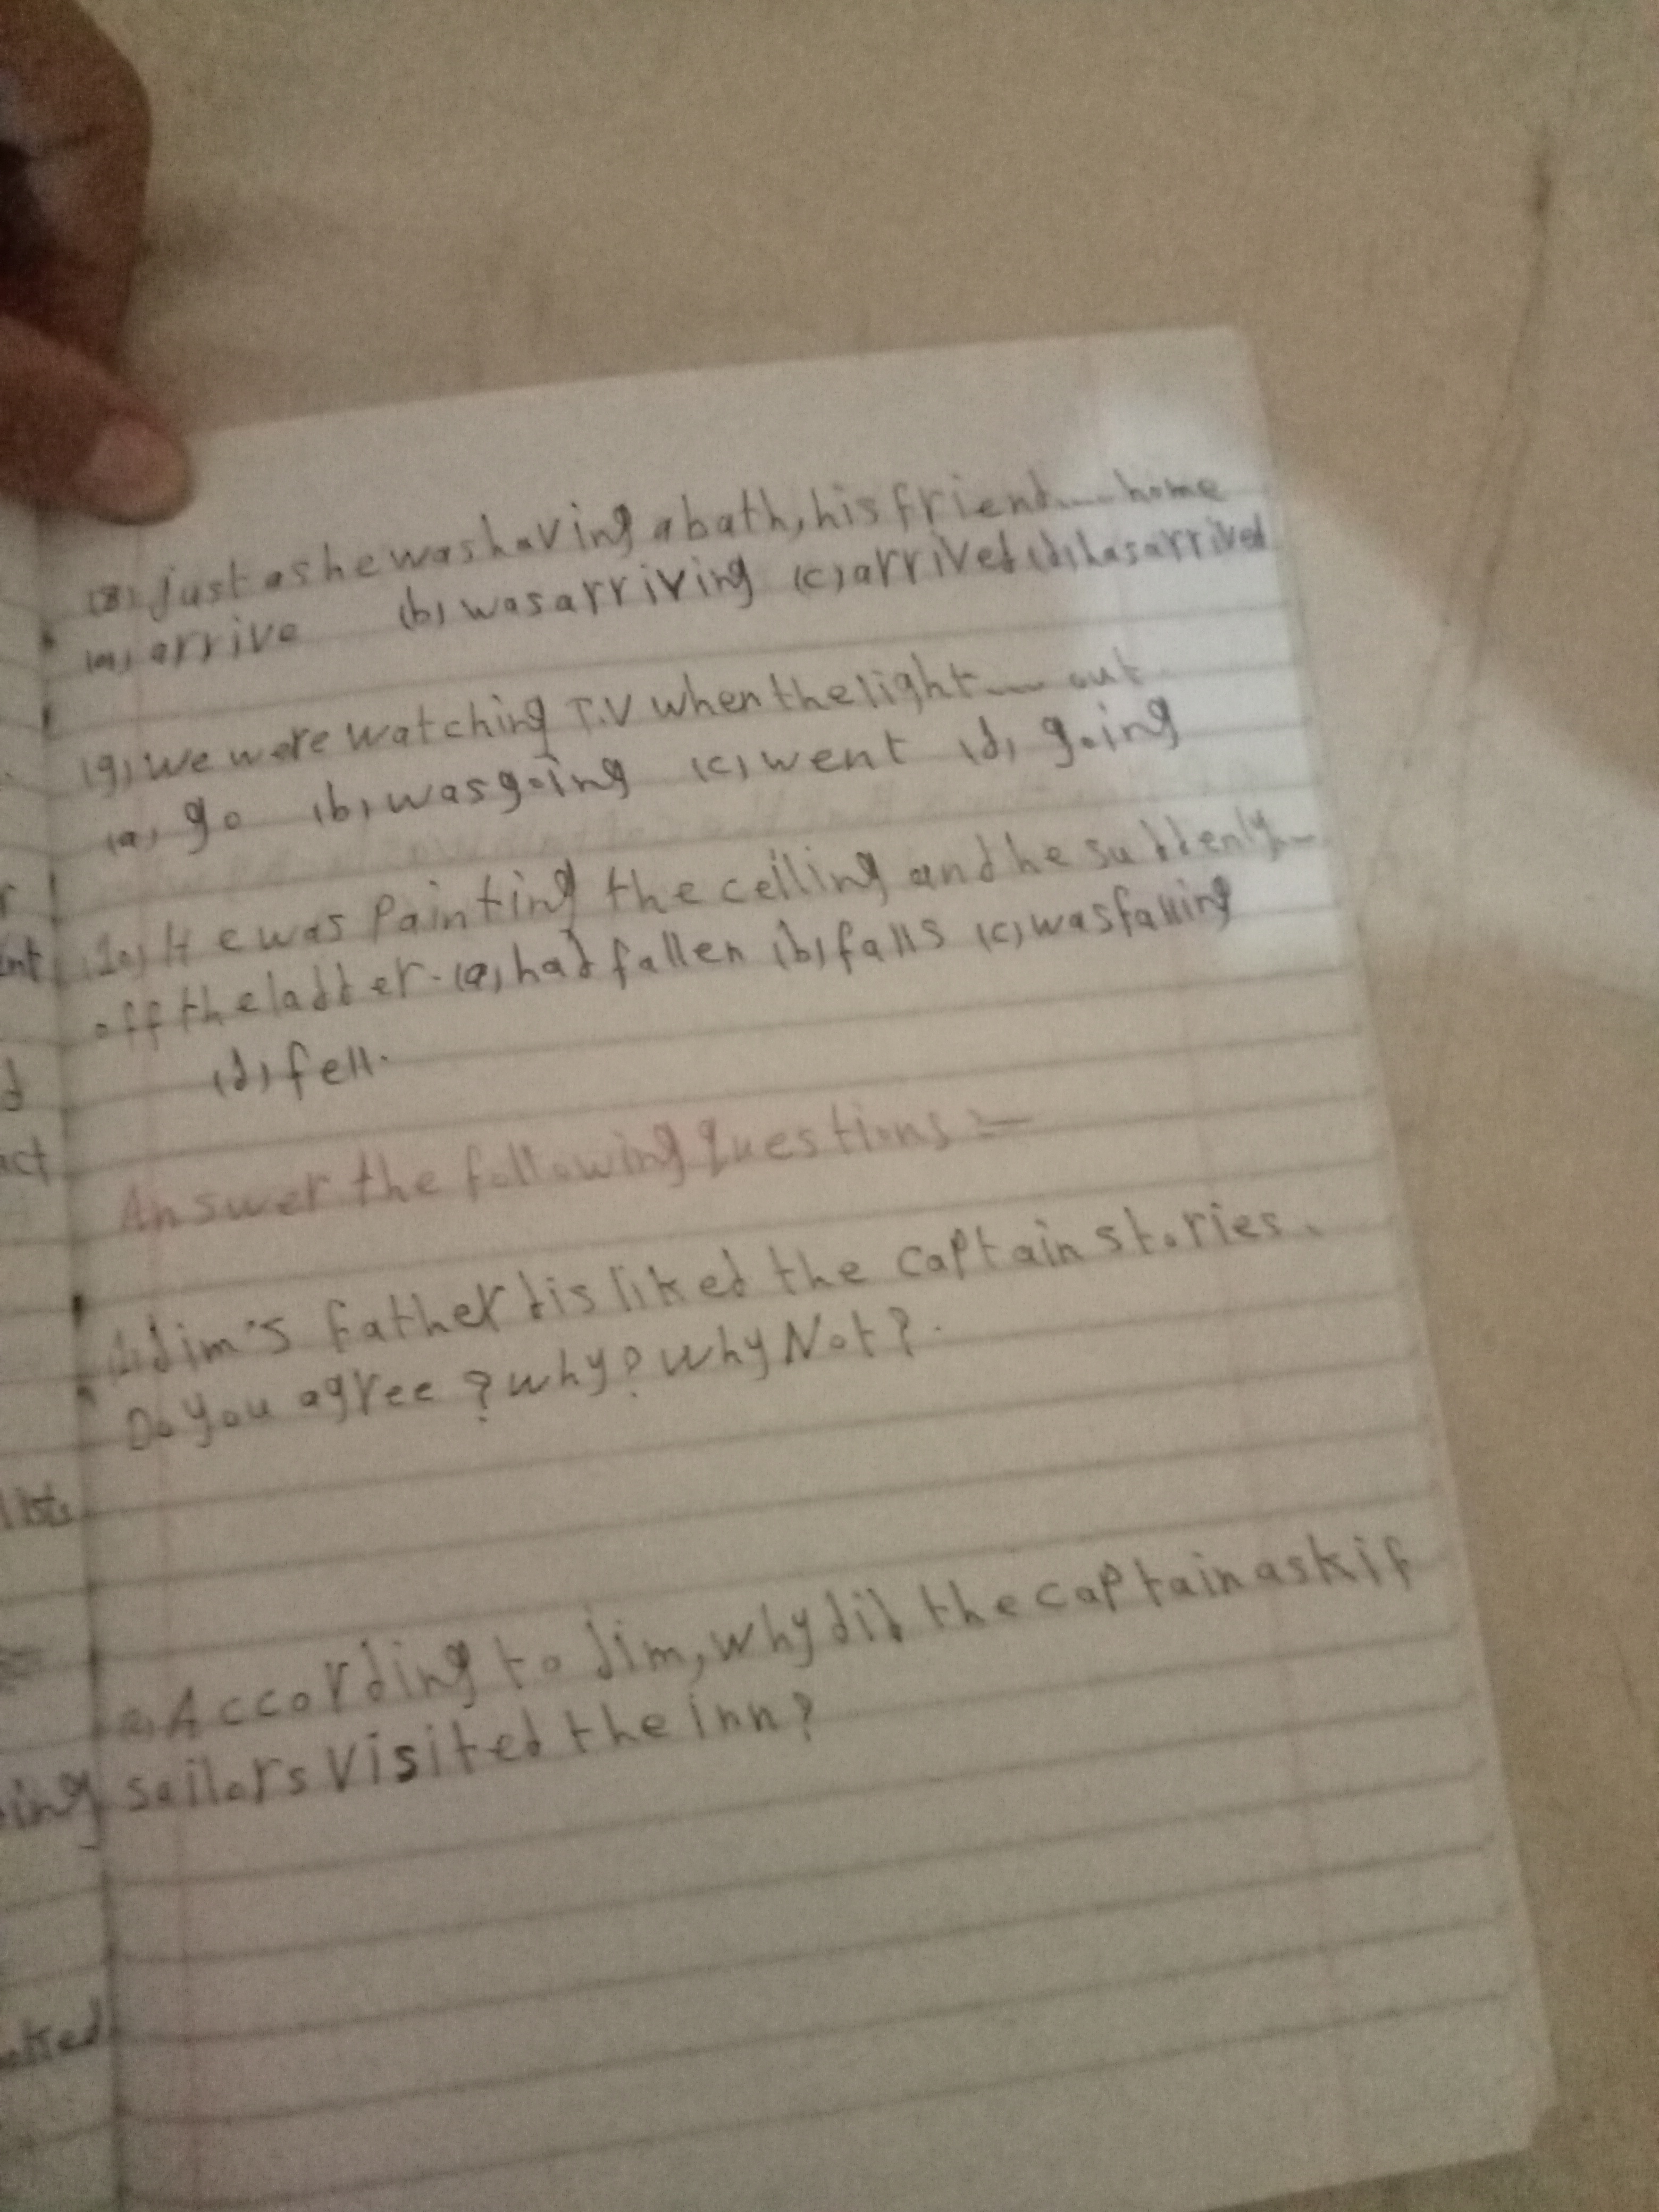 (8) just as he was having a bath, his friend.... home
(a) arrive (b) was arriving (c) arrived (d) has arrived
(9) We were watching T.V when the light.... out
(a) go (b) was going (c) went (d) going
(10) He was Painting the ceiling and he suddenly...
off the ladder. (a) had fallen (b) falls (c) was falling
(d) fell.
Answer the following questions:-
1. Jim's father disliked the captain stories.
Do you agree? why? why Not?.
2. According to Jim, why did the captain ask if
sailors visited the inn?